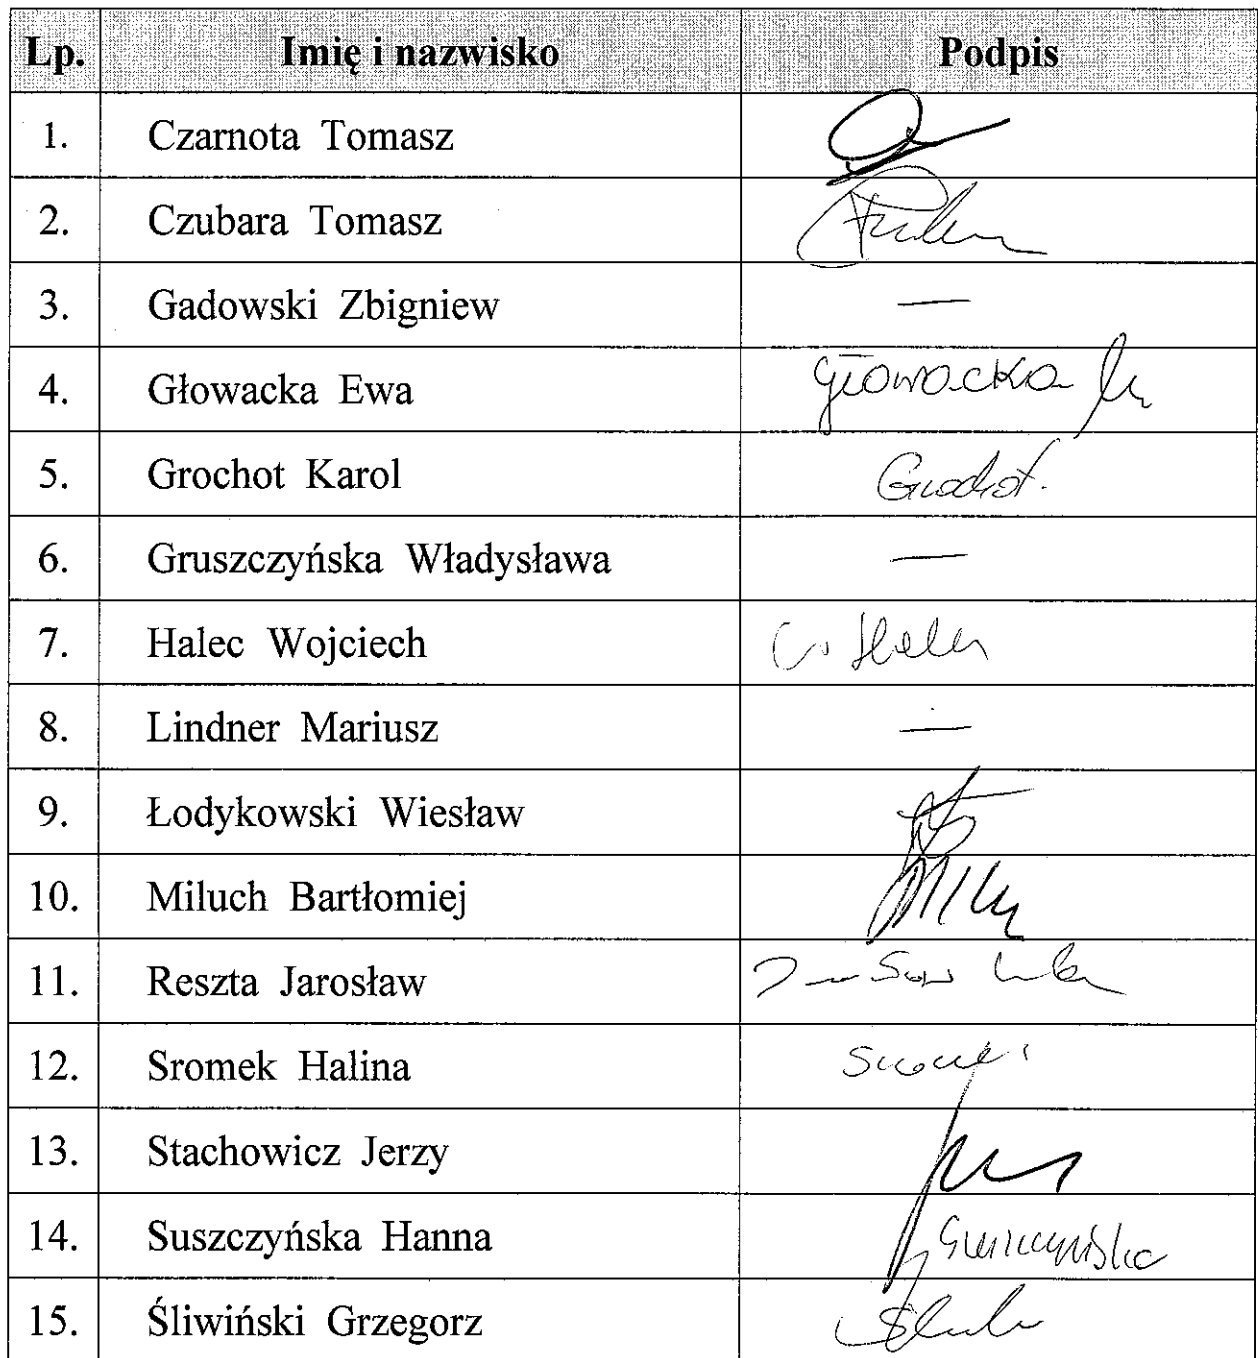 Lp. Imię i nazwisko Podpis
1. Czarnota Tomasz
2. Czubara Tomasz
3. Gadowski Zbigniew —
4. Głowacka Ewa Głowacka
5. Grochot Karol Grochot.
6. Gruszczyńska Władysława —
7. Halec Wojciech
8. Lindner Mariusz —
9. Łodykowski Wiesław
10. Miluch Bartłomiej
11. Reszta Jarosław
12. Sromek Halina
13. Stachowicz Jerzy
14. Suszczyńska Hanna Suszczyńska
15. Śliwiński Grzegorz